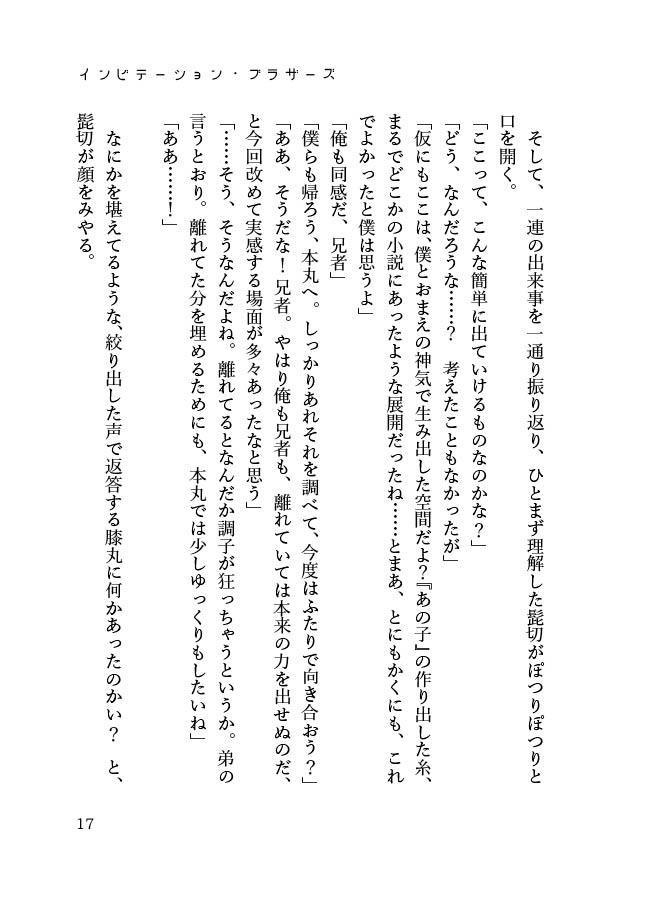 インビテーション・ブラザーズ
　そして、一連の出来事を一通り振り返り、ひとまず理解した髭切がぽつりぽつりと
口を開く。
「ここって、こんな簡単に出ていけるものなのかな？」
「どう、なんだろうな……？　考えたこともなかったが」
「仮にもここは、僕とおまえの神気で生み出した空間だよ？『あの子』の作り出した糸、
まるでどこかの小説にあったような展開だったね……とまあ、とにもかくにも、これ
でよかったと僕は思うよ」
「俺も同感だ、兄者」
「僕らも帰ろう、本丸へ。しっかりあれそれを調べて、今度はふたりで向き合おう？」
「ああ、そうだな！兄者。やはり俺も兄者も、離れていては本来の力を出せぬのだ、
と今回改めて実感する場面が多々あったなと思う」
「……そう、そうなんだよね。離れてるとなんだか調子が狂っちゃうというか。弟の
言うとおり。離れてた分を埋めるためにも、本丸では少しゆっくりもしたいね」
「ああ……！」
　なにかを堪えてるような、絞り出した声で返答する膝丸に何かあったのかい？　と、
髭切が顔をみやる。
17